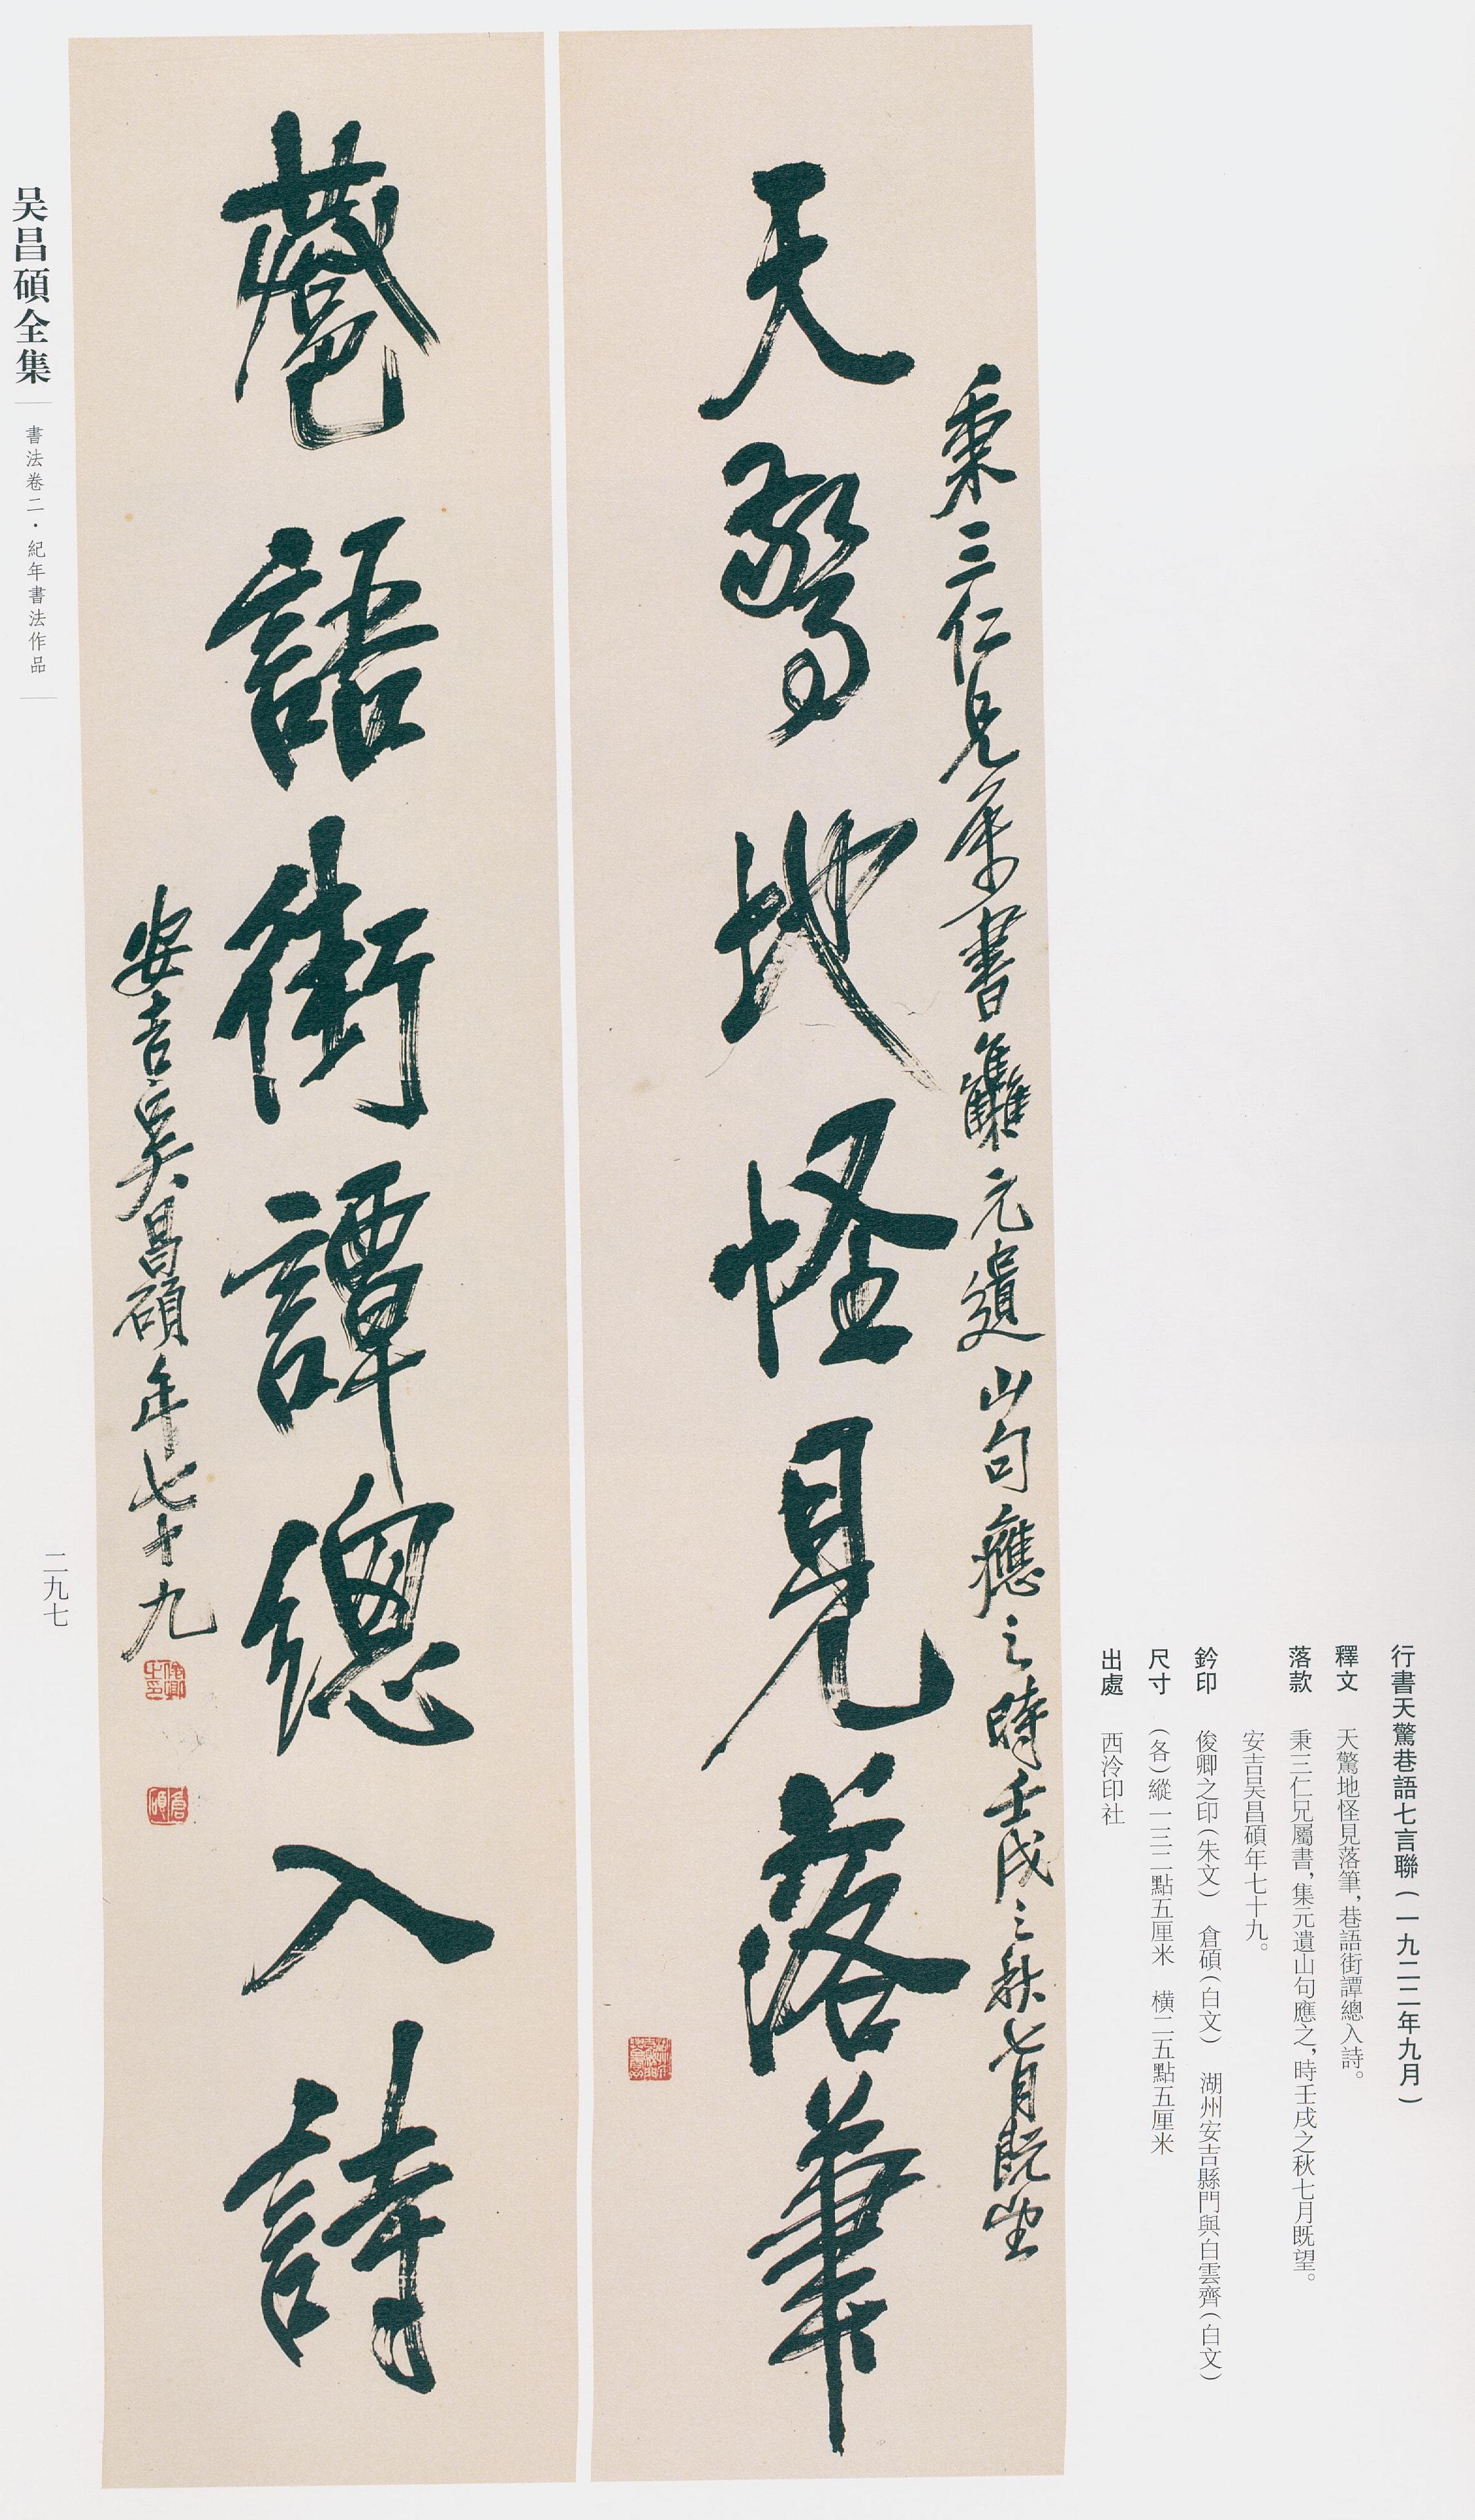 行書天驚巷語七言聯(一九二二年九月)
釋文 天驚地怪見落筆,巷語街譚總入詩。
落款 秉三仁兄屬書,集元遺山句應之,時壬戌之秋七月既望。
安吉吴昌碩年七十九。
鈐印 俊卿之印(朱文) 倉碩(白文) 湖州安吉縣門與白雲齊(白文)
尺寸 (各)縱一三二點五厘米 横二五點五厘米
出處 西泠印社
秉三仁兄屬書集元遺山句應之時壬戌之秋七月既望
天驚地怪見落筆
巷語街譚總入詩
安吉吳昌碩年七十九
俊卿之印
倉碩
吴昌碩全集
書法卷二·紀年書法作品
二九七